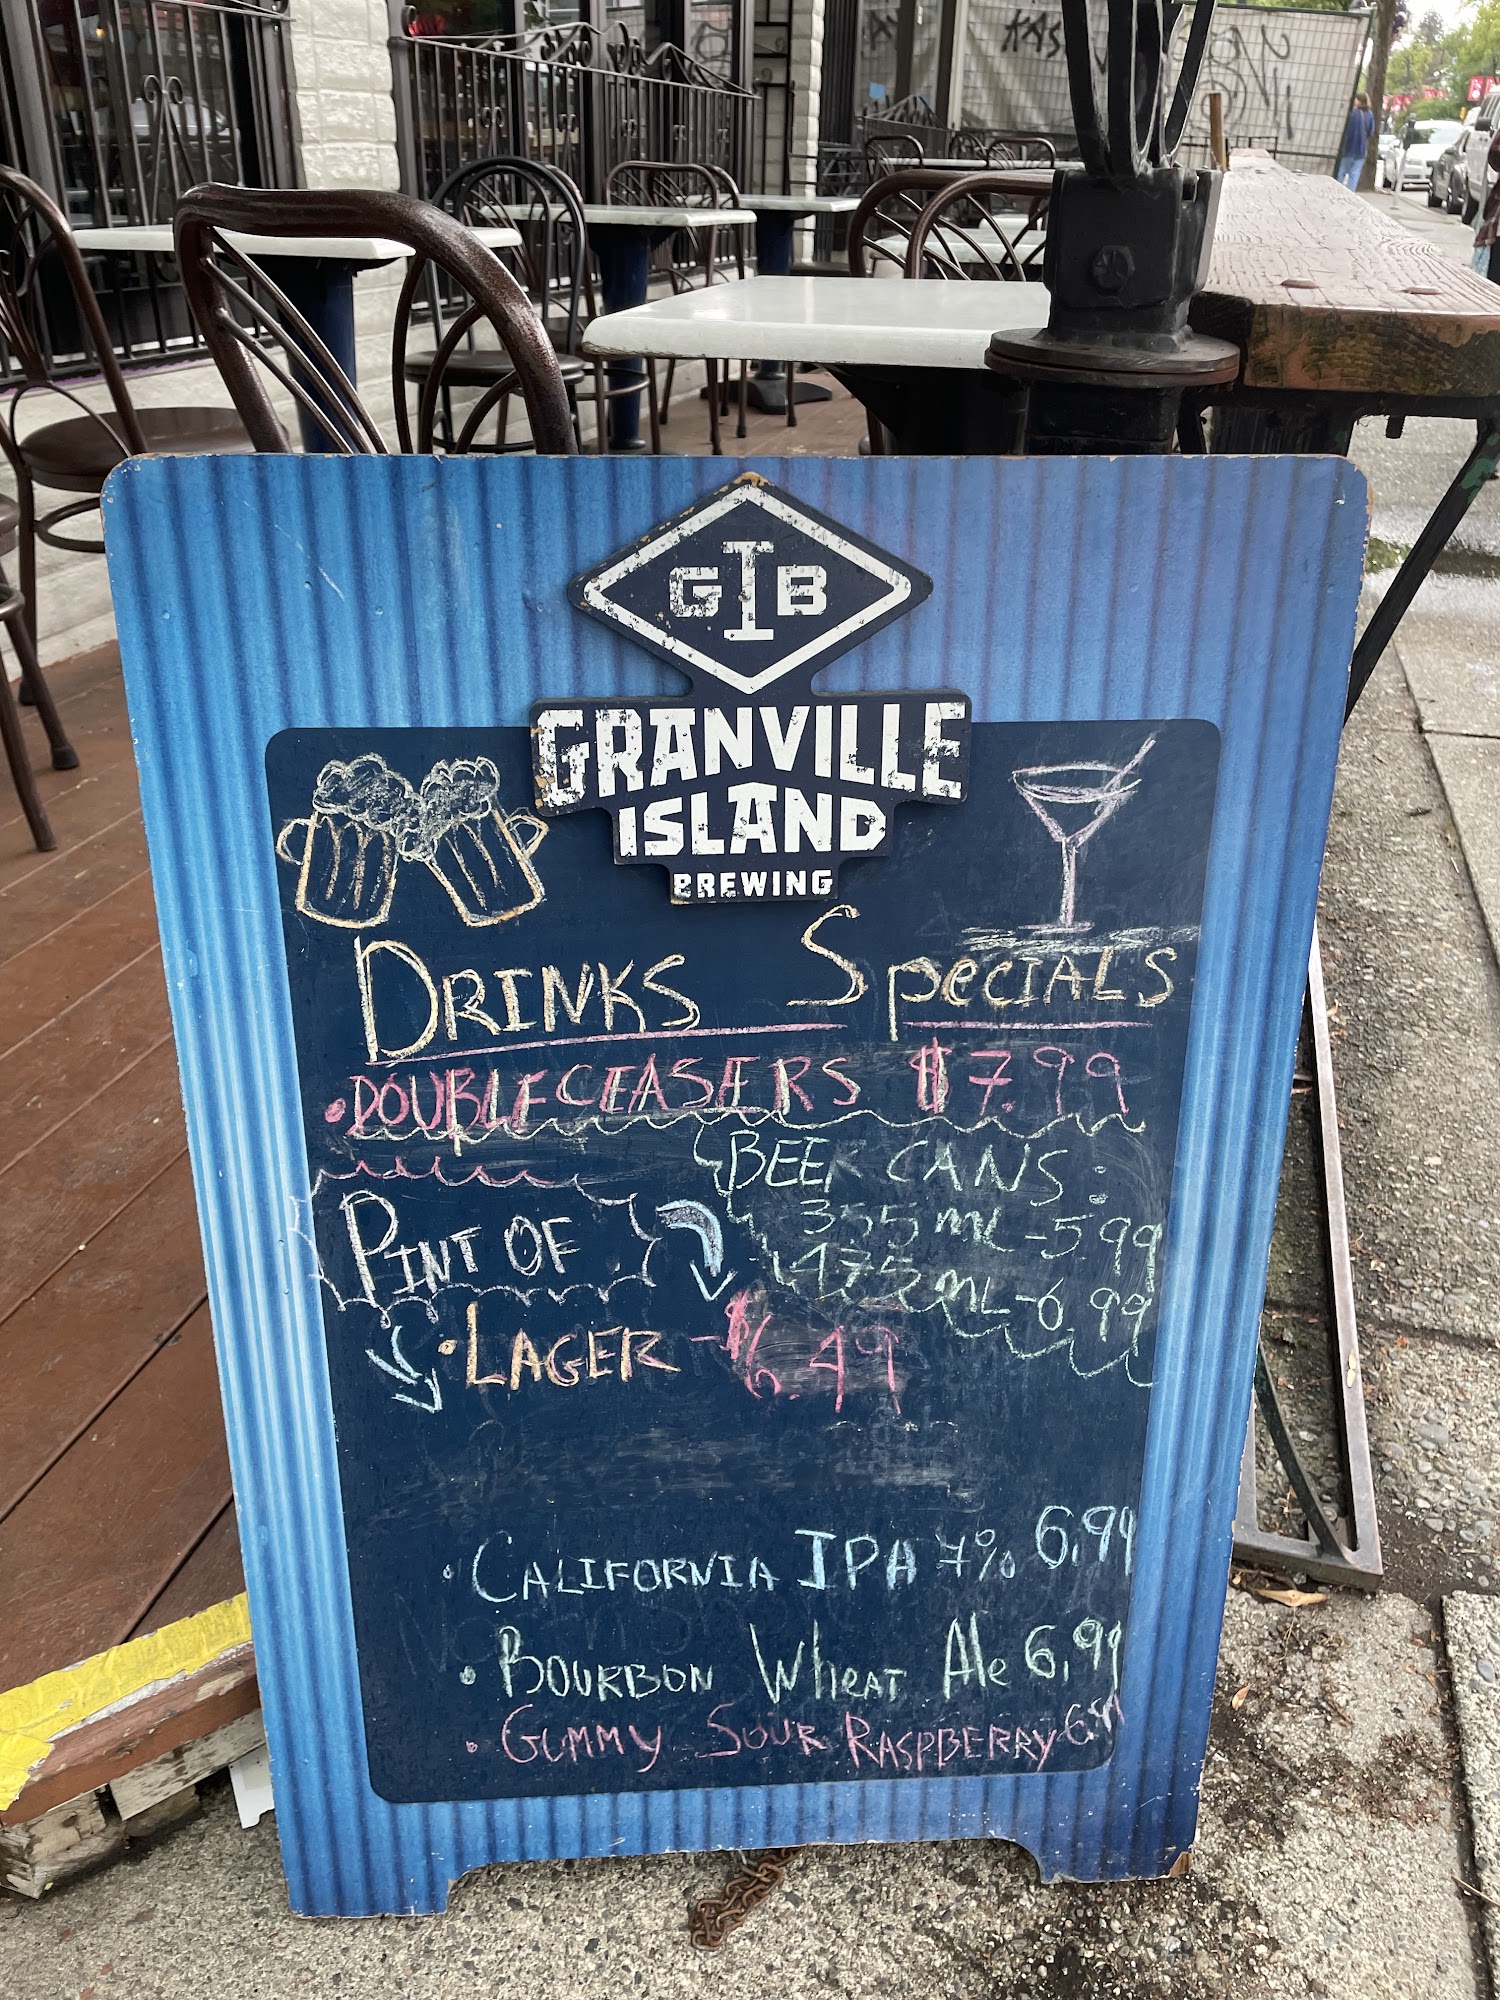 GIB
GRANVILLE
ISLAND
BREWING
DRINKS SPECIALS
•DOUBLE CEASERS $7.99
BEER CANS:
355 mL - 5.99
475 mL - 6.99
PINT OF
•LAGER - $6.49
•CALIFORNIA IPA 7% 6.99
•BOURBON WHEAT Ale 6.99
•GUMMY SOUR RASPBERRY